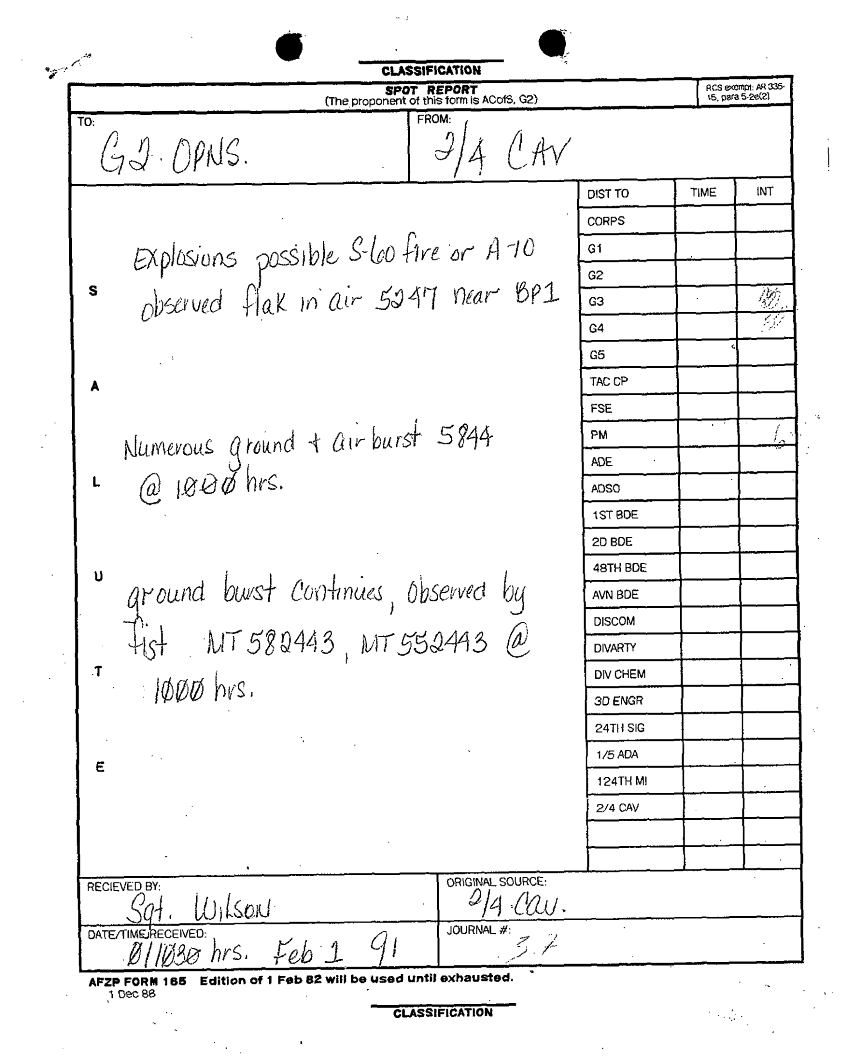 CLASSIFICATION
SPOT REPORT
(The proponent of this form is ACofS, G2)
RCS exempt: AR 335-
15, para 5-2e(2)
TO:
G2 OPNS.
FROM:
2/4 CAV
DIST TO TIME INT
CORPS
G1
G2
G3
G4
G5
TAC CP
FSE
PM
ADE
ADSO
1ST BDE
2D BDE
48TH BDE
AVN BDE
DISCOM
DIVARTY
DIV CHEM
3D ENGR
24TH SIG
1/5 ADA
124TH MI
2/4 CAV
S
A
L
U
T
E
Explosions possible S-60 fire or A-10
observed flak in air 5247 near BP1
Numerous ground + airburst 5844
@ 1000 hrs.
ground burst continues, observed by
fist MT582443, MT552443 @
1000 hrs.
RECIEVED BY:
Sgt. Wilson
ORIGINAL SOURCE:
2/4 Cav.
DATE/TIME RECEIVED:
011030 hrs. Feb 1 91
JOURNAL #:
AFZP FORM 165 Edition of 1 Feb 82 will be used until exhausted.
1 Dec 88
CLASSIFICATION